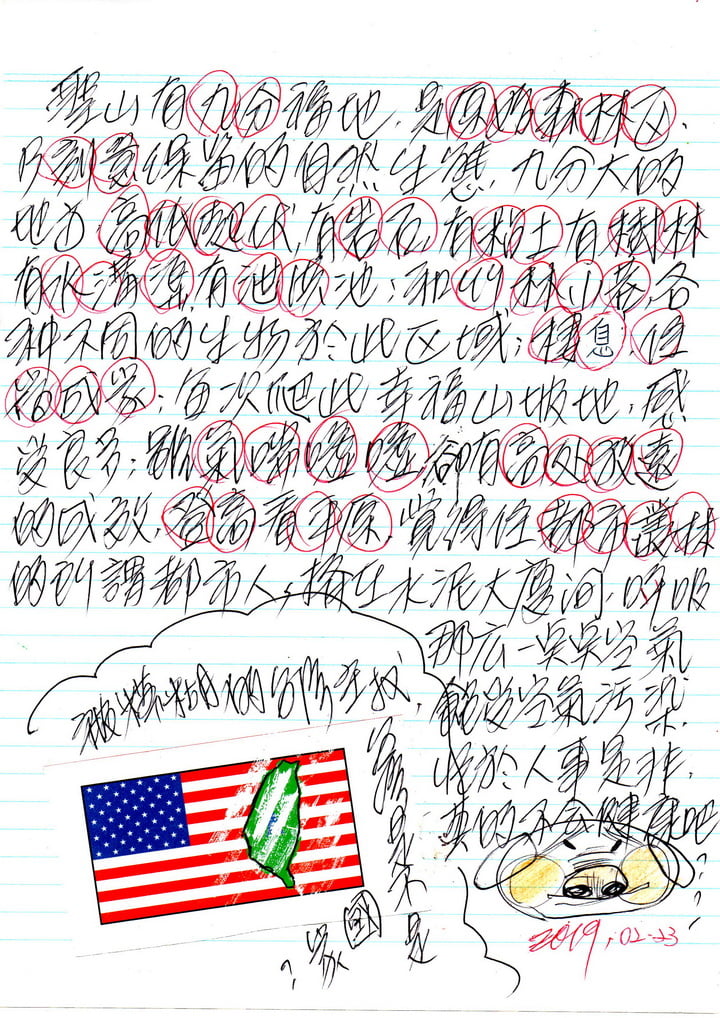 聖山有九分福地,是原始森林区,
以刻意保留的自然生態,九分大的
地方高低起伏,有岩石,有粘土有樹林
有水溝渠,有池供池;和竹林小巷,各
種不同的生物於此区域;棲息,住
紮成家;每次爬此幸福山坡地,感
受良多;雖氣喘噓噓卻有高处放遠
的成效,登高看平原,覺得住都市叢林
的所謂都市人,擠在水泥大廈间,呼吸
那広一吳吳空氣
飽受空氣污染,
忙於人事是非,
真的不会健康吧
???
被模糊的台湾主权,
台灣是不是
國家?
2019,02-23